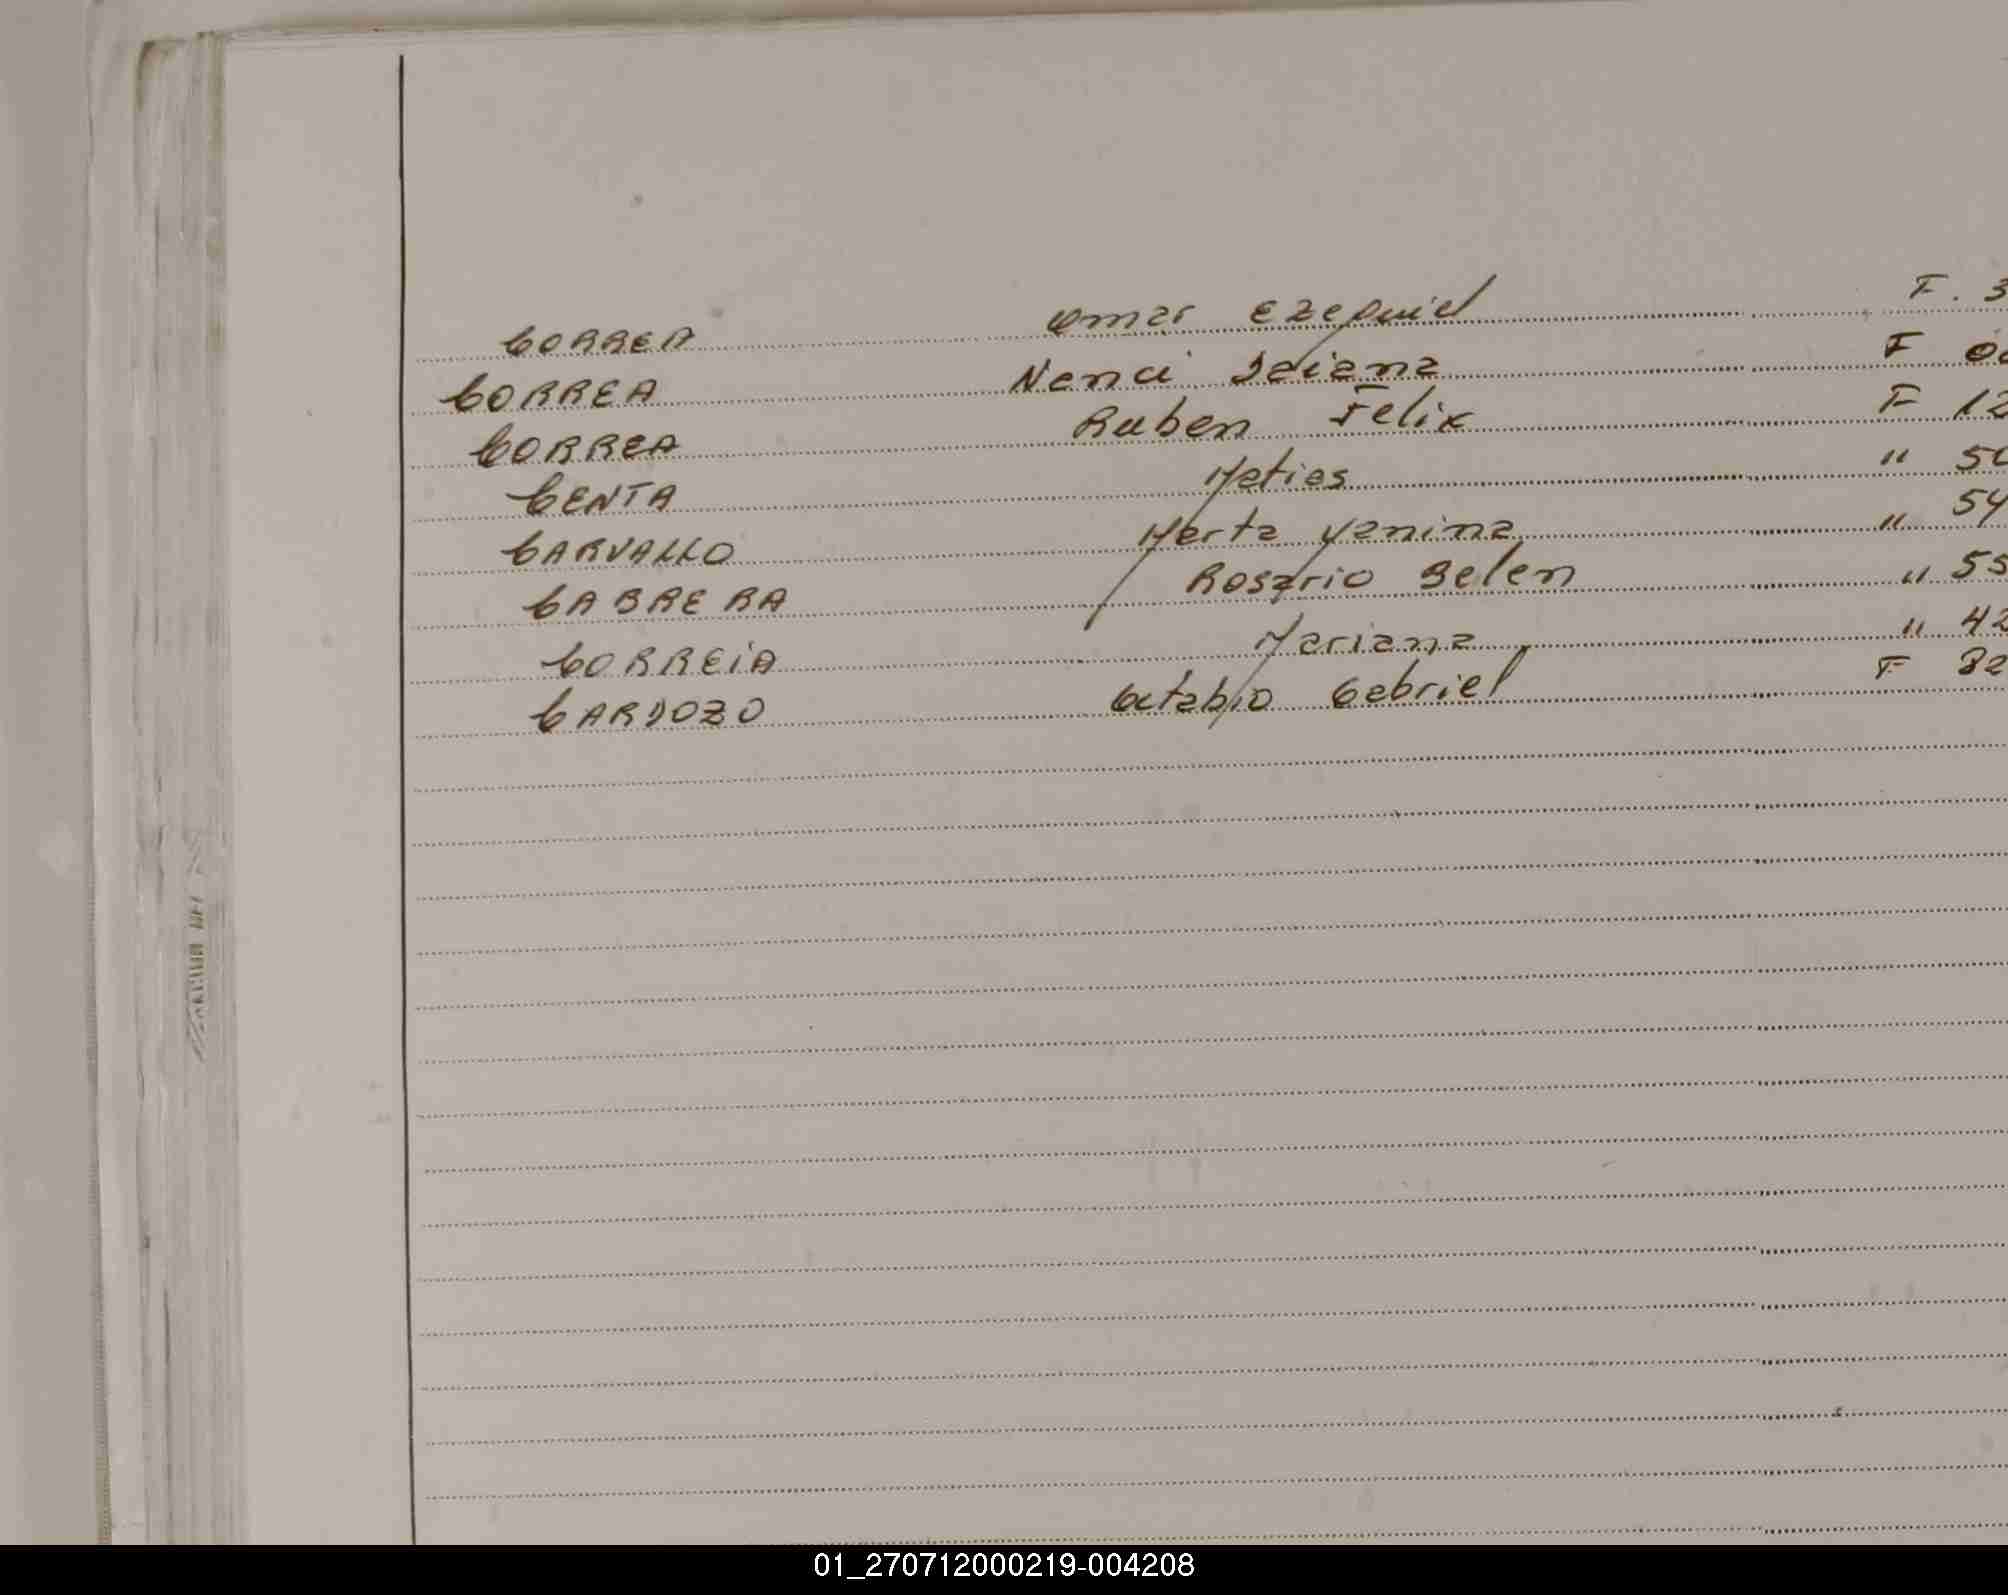 CORREA Omar Ezequiel F. 3
CORREA Nanci Daiana F 0
CORREA Ruben Felix F 12
CENTA Matias " 50
CARVALLO Marta Yanina " 54
CABRERA Rosario Belen " 55
CORREiA Mariana " 42
CARDOZO Octabio Gabriel F 82
01_270712000219-004208